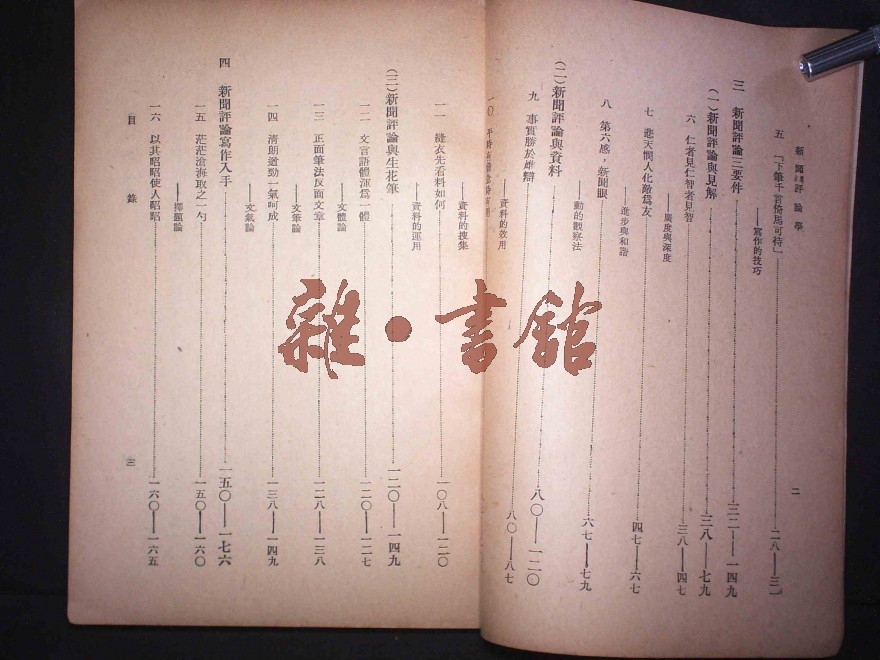 新聞評論學
二
五 「下筆千言倚馬可待」 二八——三一
——寫作的技巧
三 新聞評論三要件 三二——一四九
(一)新聞評論與見解 三八——七九
六 仁者見仁智者見智 三八——四七
——廣度與深度
七 悲天憫人化敵爲友 四七——六七
——進步與和諧
八 第六感,新聞眼 六七——七九
——動的觀察法
(二)新聞評論與資料 八〇——一二〇
九 事實勝於雄辯 八〇——八七
——資料的效用
一〇 平時
——資料的搜集
一一 縫衣先看料如何 一〇八——一二〇
——資料的運用
(三)新聞評論與生花筆 一二〇——一四九
一二 文言語體渾爲一體 一二〇——一二七
——文體論
一三 正面筆法反面文章 一二八——一三八
——文筆論
一四 清朗遒勁一氣呵成 一三八——一四九
——文氣論
四 新聞評論寫作入手 一五〇——一七六
一五 茫茫滄海取之一勺 一五〇——一六〇
——擇題論
一六 以其昭昭使人昭昭 一六〇——一六五
目錄
三
雜·書館